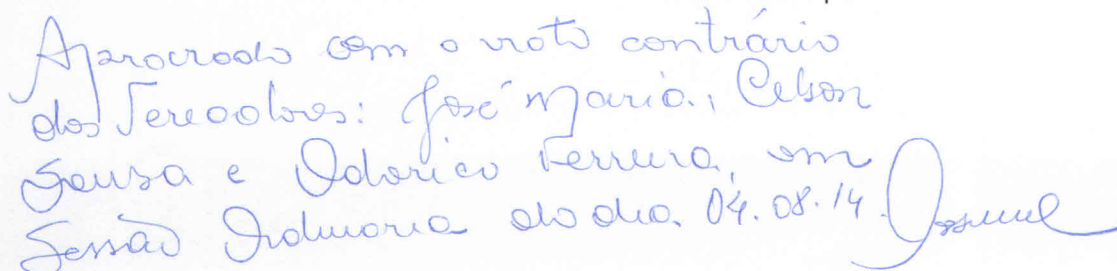 Aprovado com o voto contrário
dos Vereadores: José Maria, Celson
Sousa e Odorico Ferreira, em
Sessão Ordinária do dia 04.08.14.